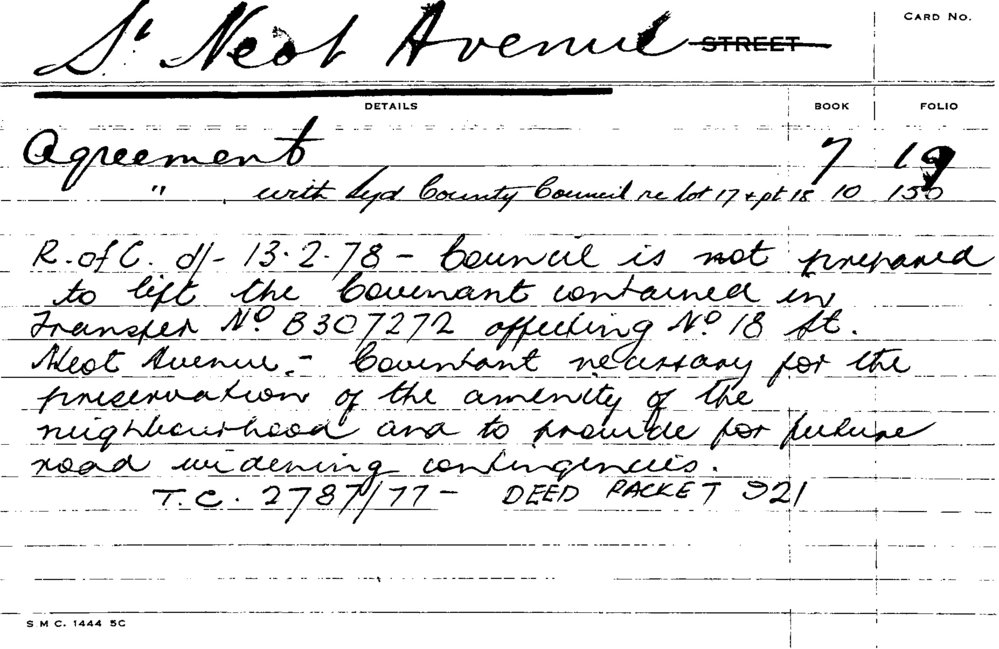 CARD NO.
St Neot Avenue STREET
DETAILS BOOK FOLIO
Agreement 7 19
" with Syd County Council re Lot 17 & pt 18 10 150
R. of C. d/- 13.2.78 - Council is not prepared
to lift the Covenant contained in
Transfer No B307272 affecting No 18 St.
Neot Avenue. - Covenant necessary for the
preservation of the amenity of the
neighbourhood and to provide for future
road widening contingencies.
T.C. 2787/77 - DEED PACKET 921
S M C. 1444 5C